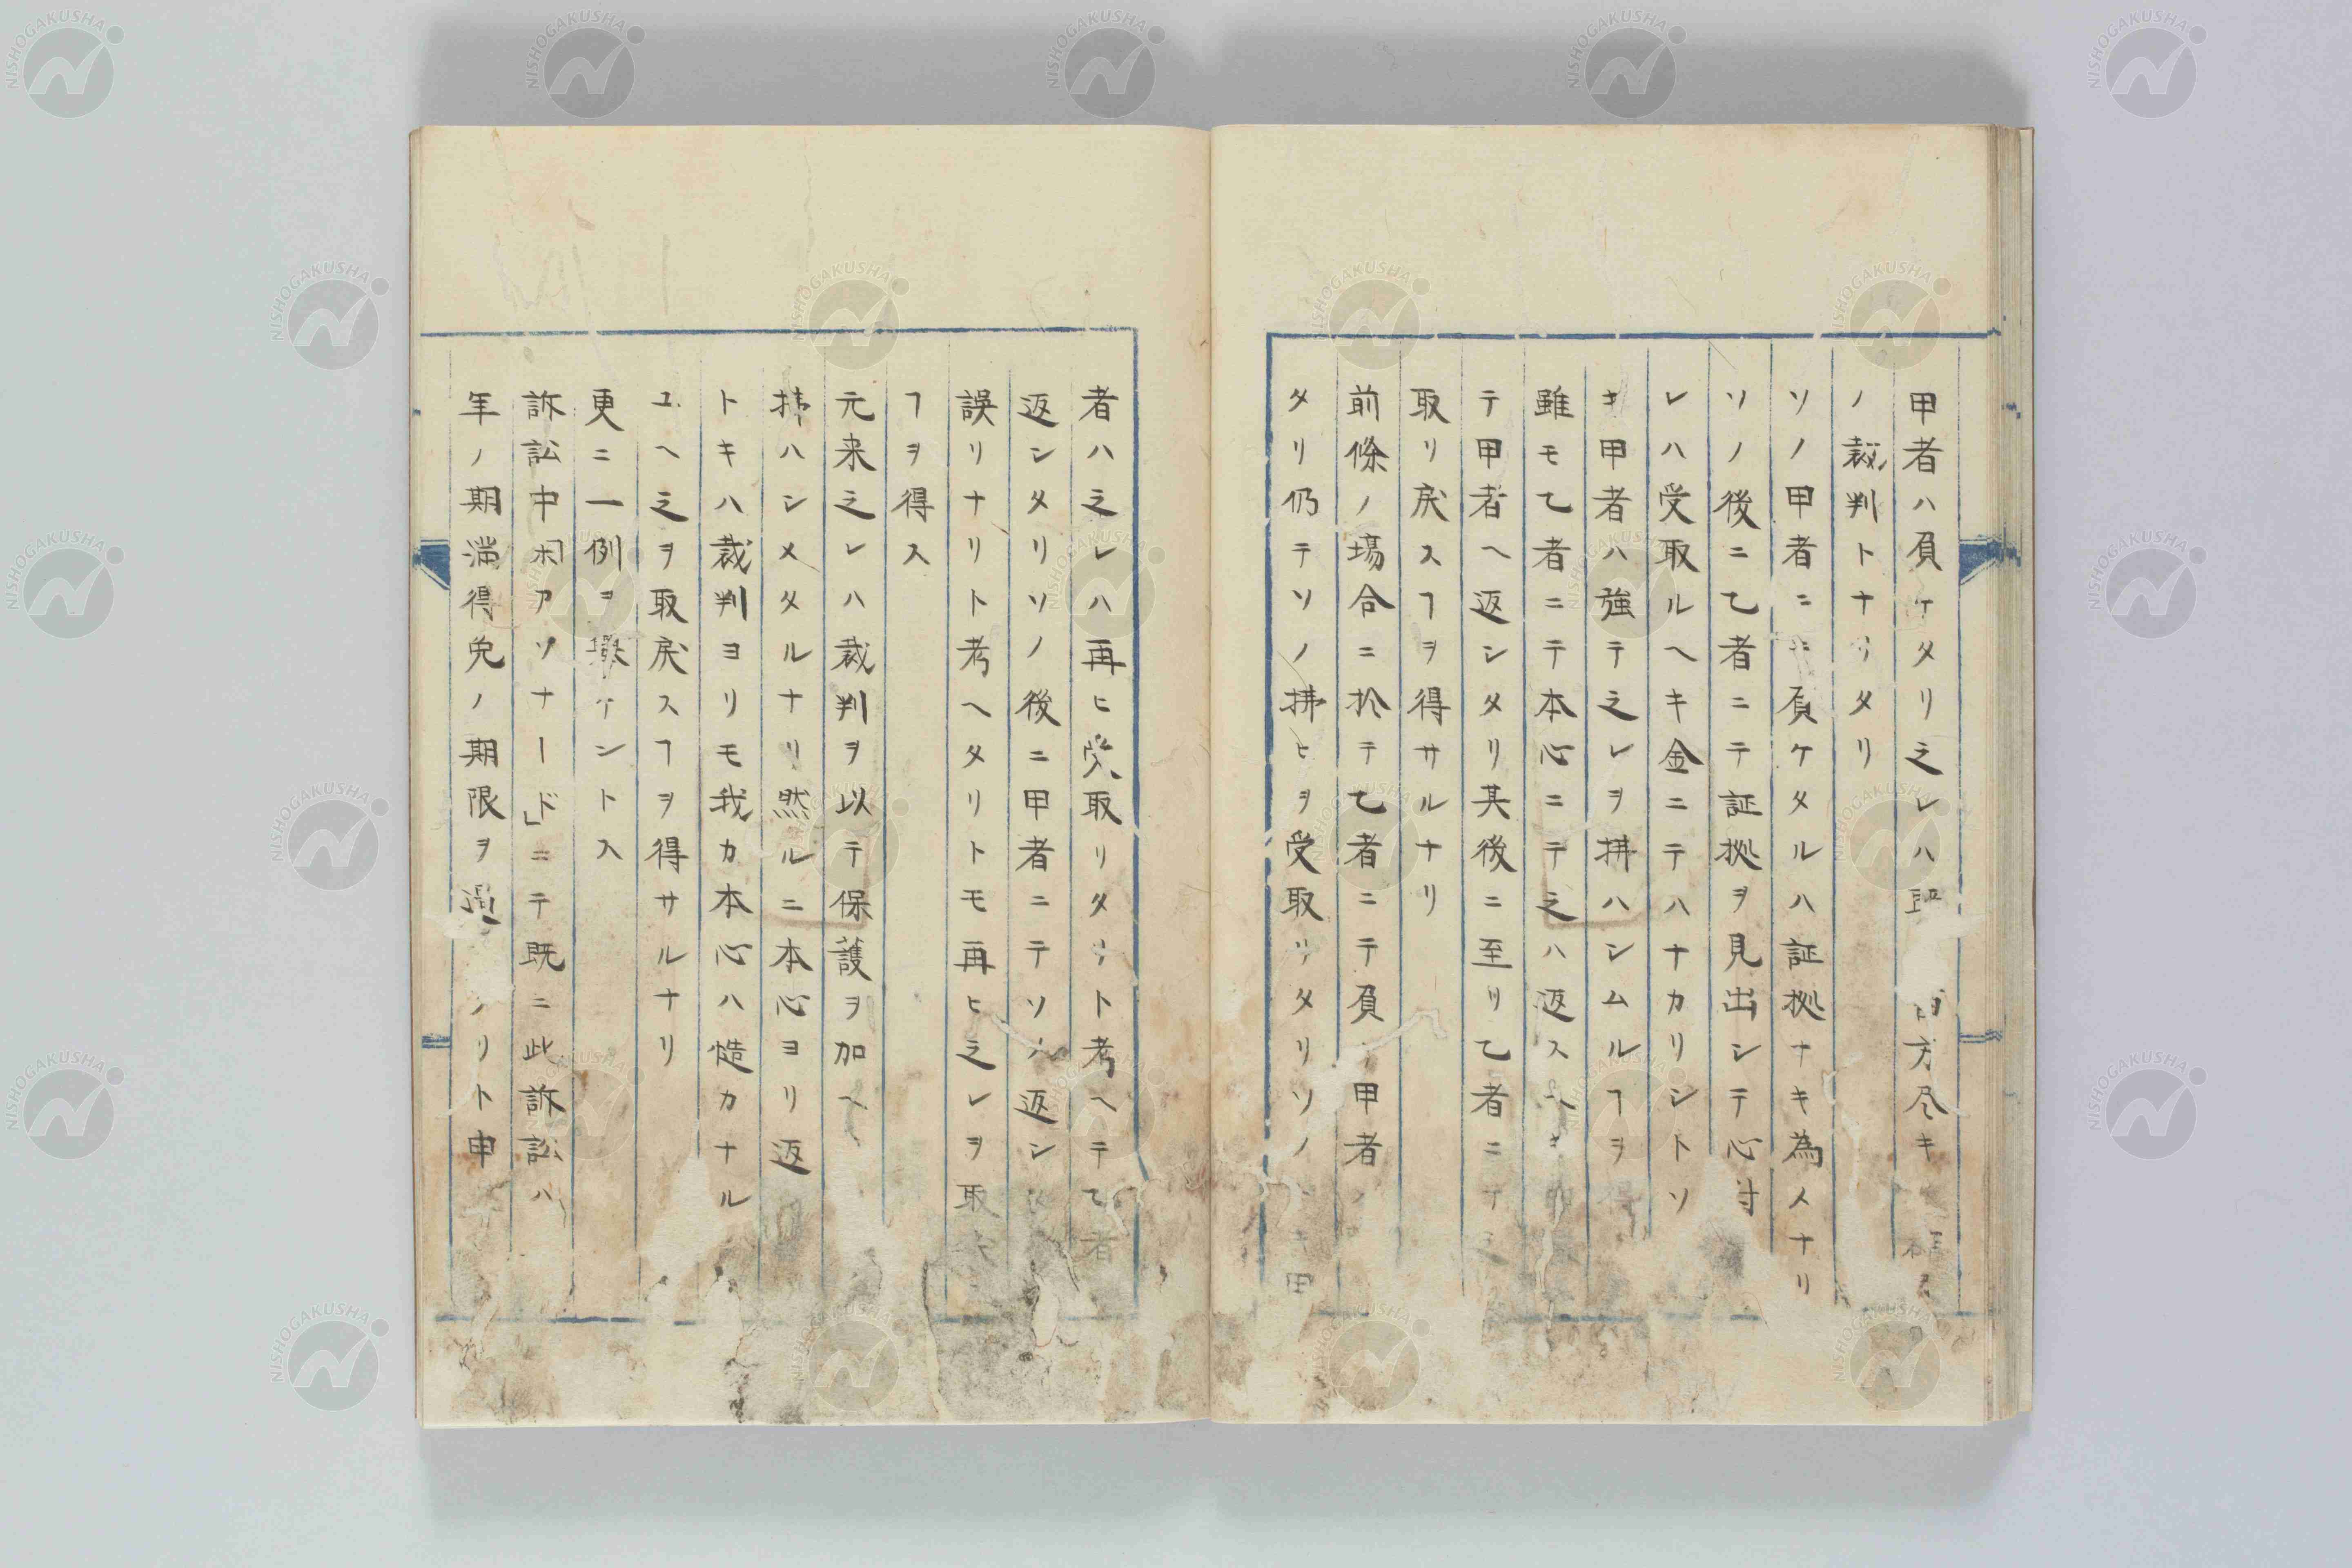 甲者ハ負ケタリ之レハ 方尽キ
ノ裁判トナリタリ
ソノ甲者ニ 負ケタルハ証拠ナキ為メナリ
ソノ後ニ乙者ニテ証拠ヲ見出シテ心付
レハ受取ルヘキ金ニテハナカリシトソ
キ甲者ハ強テ之レヲ拂ハシムルヿヲ得
雖モ乙者ニテ本心ニテ之ハ返スヘキ
テ甲者ヘ返シタリ其後ニ至リ乙者ニテ之
取リ戻スヿヲ得サルナリ
前條ノ場合ニ於テ乙者ニテ負ケ甲者ノ
タリ仍テソノ拂ヒヲ受取リタリソノ 甲
者ハ之レハ再ヒ受取リタリト考ヘテ乙者
返シタリソノ後ニ甲者ニテソノ返シ
誤リナリト考ヘタリトモ再ヒ之レヲ取
ヿヲ得ス
元来之レハ裁判ヲ以テ保護ヲ加ヘ
拂ハシメタルナリ然ルニ本心ヨリ返
トキハ裁判ヨリモ我カ本心ハ慥カナル
ユヘ之ヲ取戻スヿヲ得サルナリ
更ニ一例ヲ擧ケントス
訴訟中「ボアソナード」ニテ既ニ此訴訟ハ
年ノ期満得免ノ期限ヲ過 リト申